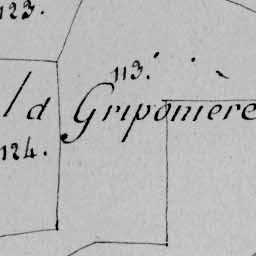 123.
113.
la Gripônière
124.